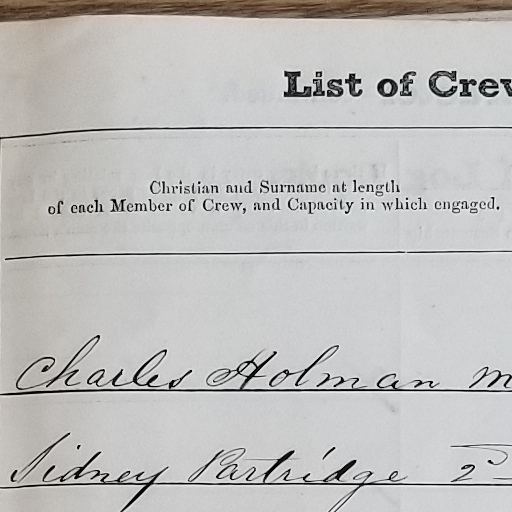 List of Crew
Christian and Surname at length
of each Member of Crew, and Capacity in which engaged.
Charles Holman m
Sidney Partridge 2d